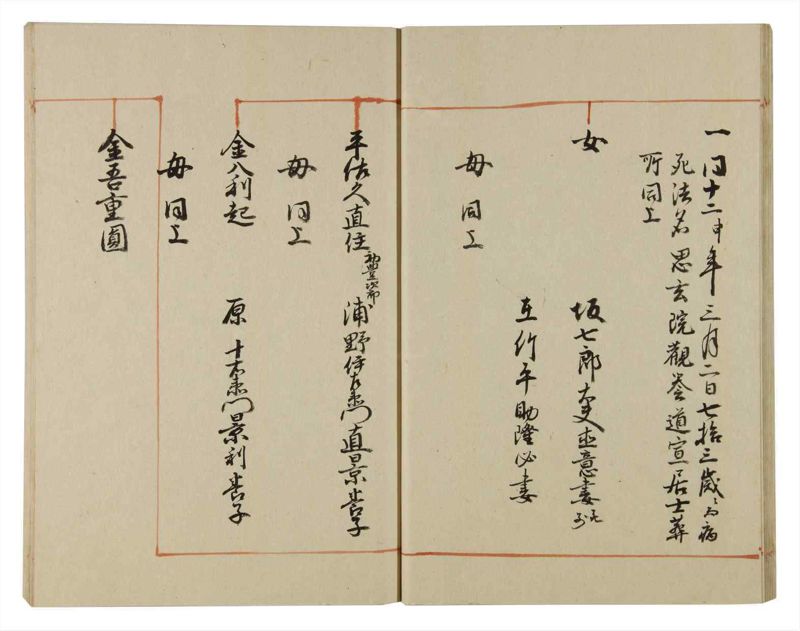 一同十二申年三月二日七拾三歳ニ而病
死法名思玄院觀誉道宣居士葬
所同上
女
坂七郎直意妻死
五竹平助隆必妻
母同上
平佐久直住
浦野伊右衛門直景養子
母同上
金八利起
原十右衛門景利養子
母同上
金吾重圓